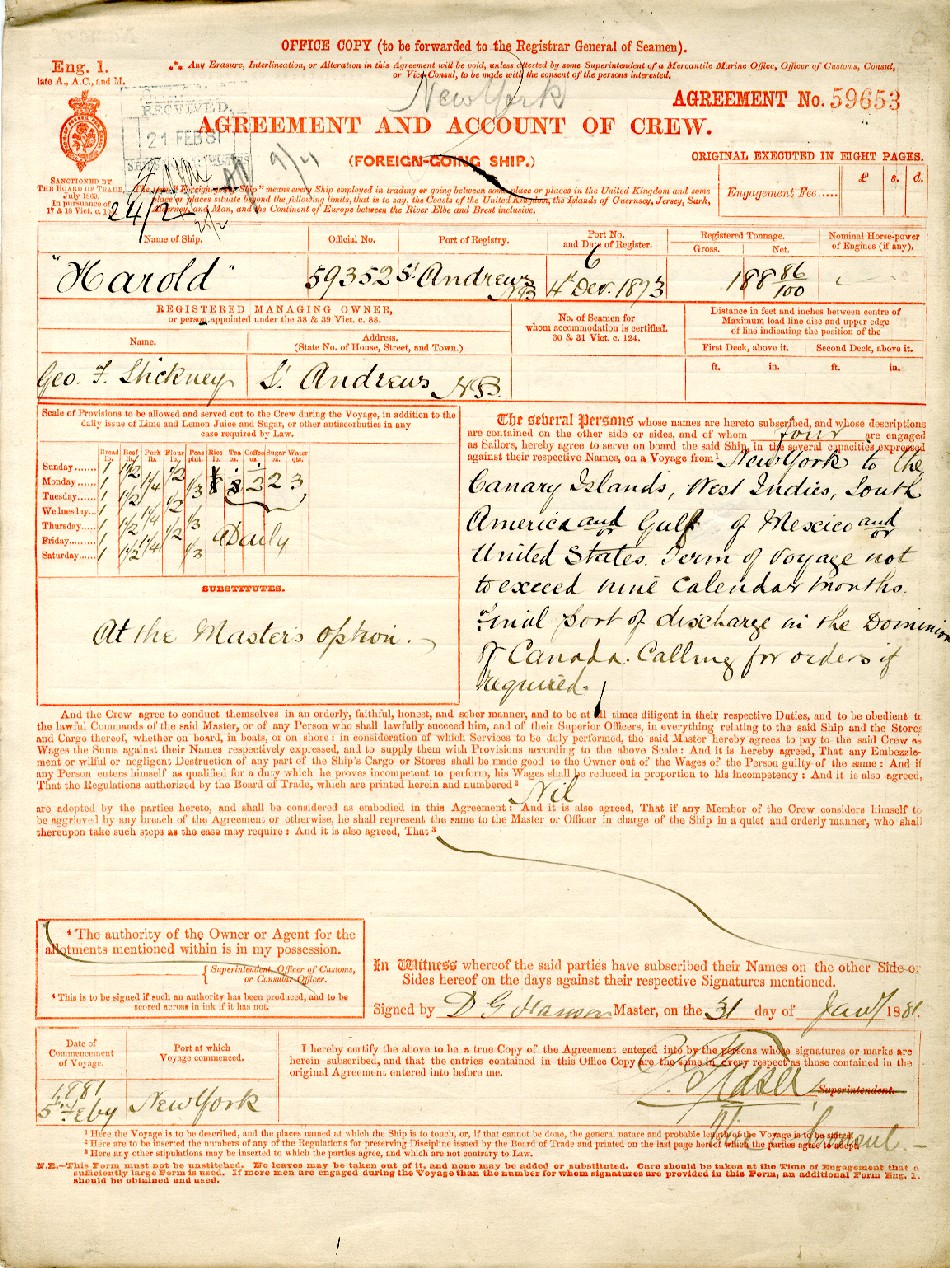 OFFICE COPY (to be forwarded to the Registrar General of Seamen).
Eng. 1.
late A., A.C., and M.
Any Erasure, Interlineation, or Alteration in this Agreement will be void, unless attested by some Superintendent of a Mercantile Marine Office, Officer of Customs, Consul,
or Vice Consul, to be made with the consent of the persons interested.
New York
AGREEMENT No. 59653
RECEIVED
21 FEB 81
AGREEMENT AND ACCOUNT OF CREW.
(FOREIGN-GOING SHIP.)
ORIGINAL EXECUTED IN EIGHT PAGES.
SANCTIONED BY
THE BOARD OF TRADE,
July 1869.
In pursuance of
17 & 18 Vict. c. 1
24/2
The term "Foreign-going Ship" means every Ship employed in trading or going between some place or places in the United Kingdom and some
place or places situate beyond the following limits, that is to say, the Coasts of the United Kingdom, the Islands of Guernsey, Jersey, Sark,
Alderney, and Man, and the Continent of Europe between the River Elbe and Brest inclusive.
£ s. d.
Engagement Fee.....
Name of Ship.
Official No.
Port of Registry.
Port No.
and Date of Register.
Registered Tonnage.
Gross. Net.
Nominal Horse-power
of Engines (if any).
"Harold"
59352
St. Andrews
NB
6
4th Dec. 1873
188 86/100
REGISTERED MANAGING OWNER,
or person appointed under the 38 & 39 Vict. c. 88.
Name.
Address.
(State No. of House, Street, and Town.)
No. of Seamen for
whom accommodation is certified.
30 & 31 Vict. c. 124.
Distance in feet and inches between centre of
Maximum load line disc and upper edge
of line indicating the position of the
First Deck, above it. Second Deck, above it.
ft. in. ft. in.
Geo. F. Stickney
St. Andrews NB
Scale of Provisions to be allowed and served out to the Crew during the Voyage, in addition to the
daily issue of Lime and Lemon Juice and Sugar, or other antiscorbutics in any
case required by Law.
Bread lb. Beef lb. Pork lb. Flour lb. Peas pint. Rice lb. Tea oz. Coffee oz. Sugar oz. Water qts.
Sunday...... 1 1½ ½
Monday...... 1 1¼ 1/3
Tuesday...... 1 1½ ½
Wednesday... 1 1¼ 1/3
Thursday..... 1 1½ ½
Friday........ 1 1¼ 1/3
Saturday...... 1 1½
2 3
Daily
SUBSTITUTES.
At the Master's option.
The several Persons whose names are hereto subscribed, and whose descriptions
are contained on the other side or sides, and of whom four are engaged
as Sailors, hereby agree to serve on board the said Ship, in the several capacities expressed
against their respective Names, on a Voyage from New York to the
Canary Islands, West Indies, South
America and/or Gulf of Mexico and/or
United States. Term of Voyage not
to exceed nine Calendar months.
Final port of discharge in the Dominion
of Canada. Calling for orders if
required.
And the Crew agree to conduct themselves in an orderly, faithful, honest, and sober manner, and to be at all times diligent in their respective Duties, and to be obedient to
the lawful Commands of the said Master, or of any Person who shall lawfully succeed him, and of their Superior Officers, in everything relating to the said Ship and the Stores
and Cargo thereof, whether on board, in boats, or on shore: in consideration of which Services to be duly performed, the said Master hereby agrees to pay to the said Crew as
Wages the Sums against their Names respectively expressed, and to supply them with Provisions according to the above Scale: And it is hereby agreed, That any Embezzle-
ment or wilful or negligent Destruction of any part of the Ship's Cargo or Stores shall be made good to the Owner out of the Wages of the Person guilty of the same: And if
any Person enters himself as qualified for a duty which he proves incompetent to perform, his Wages shall be reduced in proportion to his incompetency: And it is also agreed,
That the Regulations authorized by the Board of Trade, which are printed herein and numbered ² Nil
are adopted by the parties hereto, and shall be considered as embodied in this Agreement: And it is also agreed, That if any Member of the Crew considers himself to
be aggrieved by any breach of the Agreement or otherwise, he shall represent the same to the Master or Officer in charge of the Ship in a quiet and orderly manner, who shall
thereupon take such steps as the case may require: And it is also agreed, That ³
⁴ The authority of the Owner or Agent for the
allotments mentioned within is in my possession.
Superintendent, Officer of Customs,
or Consular Officer.
⁴ This is to be signed if such an authority has been produced, and to be
scored across in ink if it has not.
In Witness whereof the said parties have subscribed their Names on the other Side or
Sides hereof on the days against their respective Signatures mentioned.
Signed by D G Hanson Master, on the 31 day of Jany 1881
Date of
Commencement
of Voyage.
Port at which
Voyage commenced.
1881
5th Feby
New York
I hereby certify the above to be a true Copy of the Agreement entered into by the persons whose signatures or marks are
herein subscribed, and that the entries contained in this Office Copy are the same in every respect as those contained in the
original Agreement entered into before me.
Superintendent.
Vice Consul.
¹ Here the Voyage is to be described, and the places named at which the Ship is to touch, or, if that cannot be done, the general nature and probable length of the Voyage is to be stated.
² Here are to be inserted the numbers of any of the Regulations for preserving Discipline issued by the Board of Trade and printed on the last page hereof which the parties agree to adopt.
³ Here any other stipulations may be inserted to which the parties agree, and which are not contrary to Law.
N.B.—This Form must not be unstitched. No leaves may be taken out of it, and none may be added or substituted. Care should be taken at the Time of Engagement that a
sufficiently large Form is used. If more men are engaged during the Voyage than the number for whom signatures are provided in this Form, an additional Form Eng. 1.
should be obtained and used.